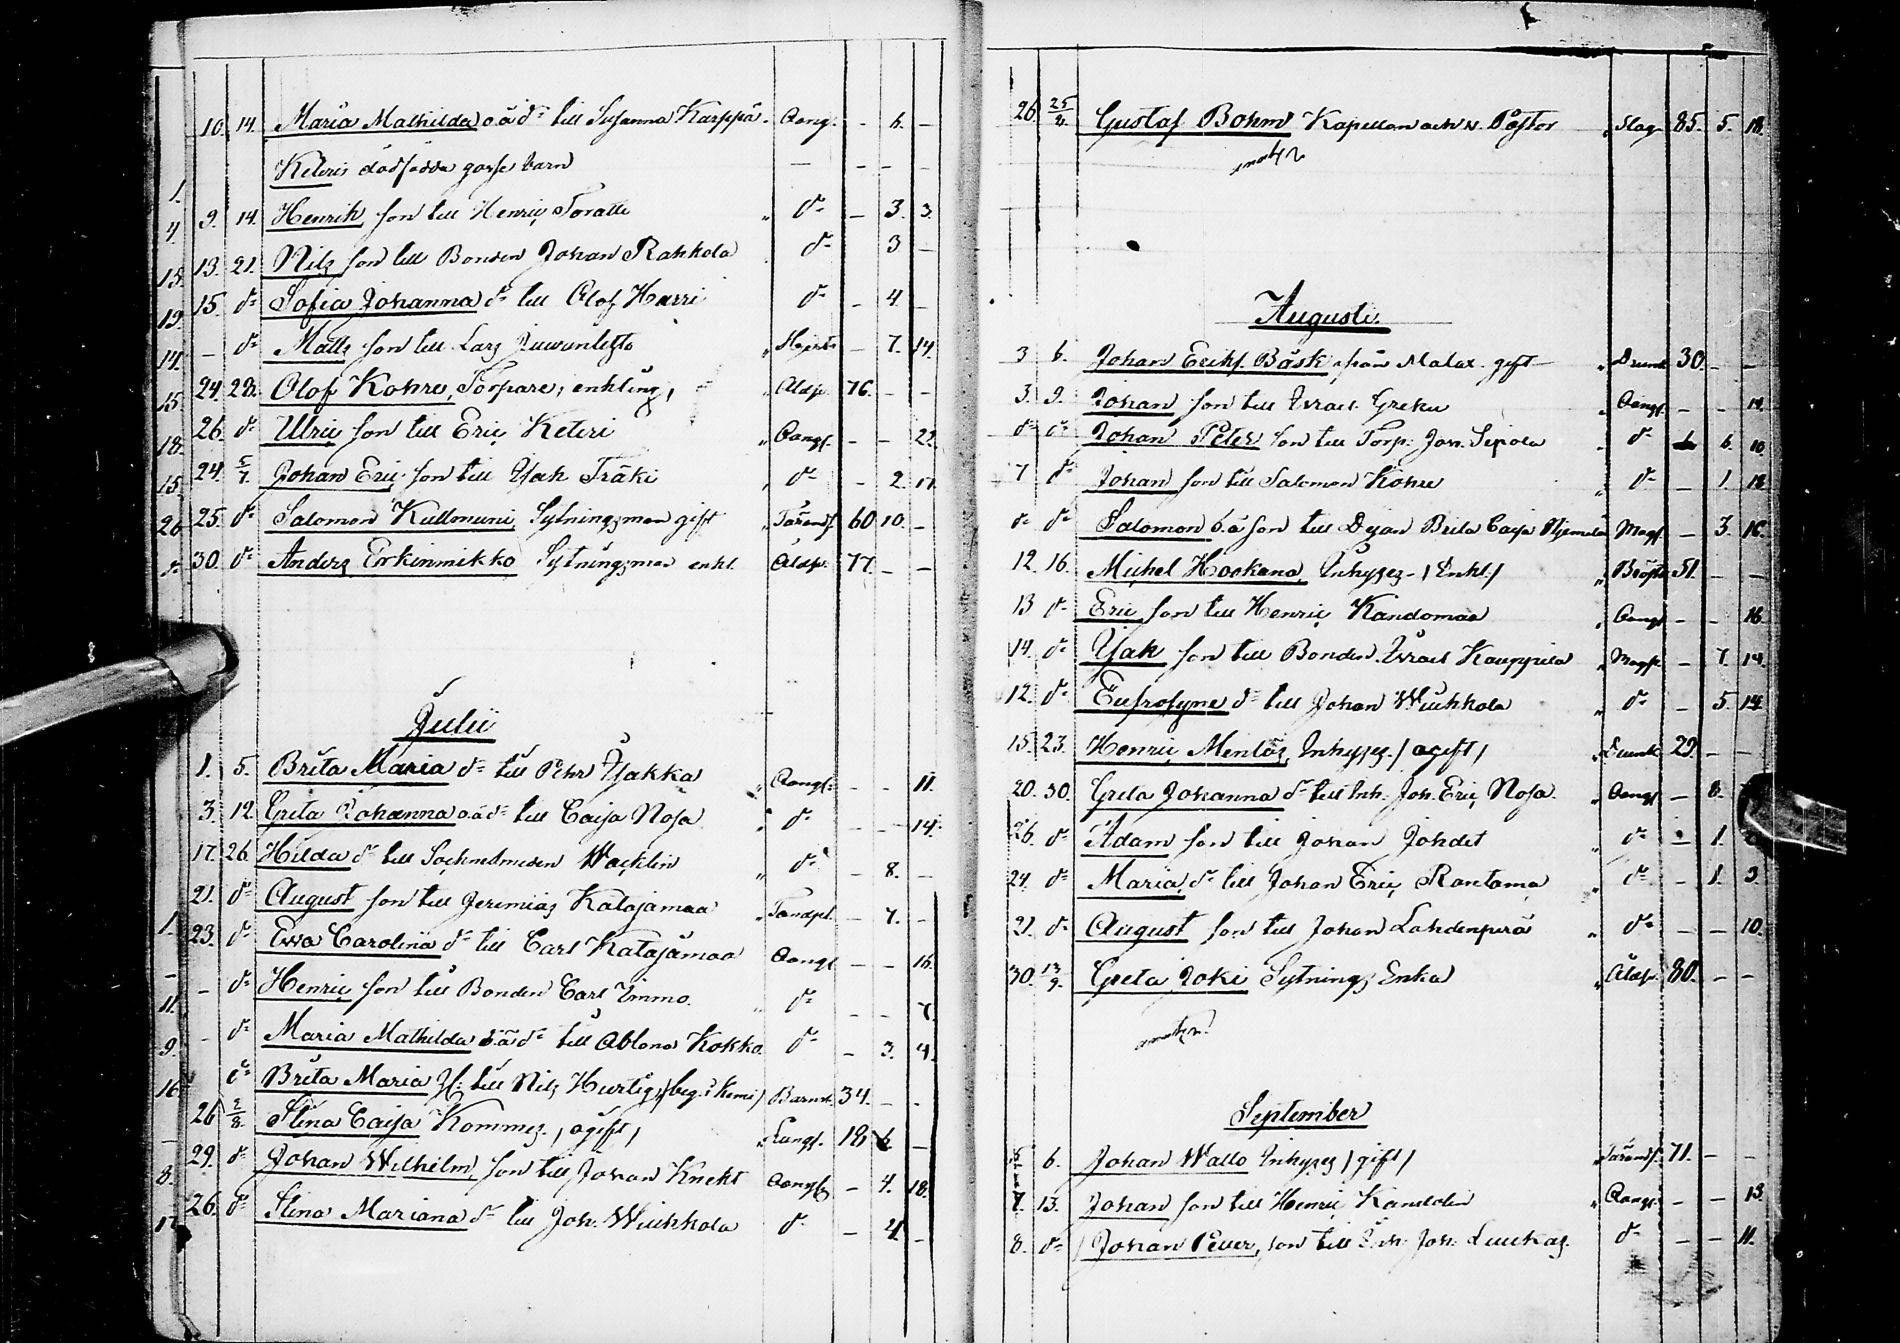 10. 14. Maria Mathilda o.ä. dr till Susanna Karppa. Aang. - 6. -
Keteris dödfödda gosse barn - - - -
1.
4. 9. 14. Henrik, son till Henric Toratti " do - 3. 3.
18. 13. 21. Nils son till Bonden Johan Rahkola do 3 -
19. 15. do Sofia Johanna dr till Olof Harri do - 4. -
14. - do Matts son till Lars - 7. 14.
15. 24. 28. Olof Kohre, Torpare, enkling, " Aldp. 76. - -
18. 26. do Ulric son till Eric Keteri " Aangf. - - 22.
15. 24. 5/7. Johan Eric son till Isak Träki " do - 2. 11.
20. 25. do Salomon Kullmuni, Sytningsman gift " 60 10. -
do 30. do Anders Erkinmikko Sytningsman enkl. Åldp. 77. - -
Julii
1. 5. Brita Maria dr till Pehr Isakka " Aangf. - - 11.
3. 12. Greta Johanna o.ä. dr till Caisa Nosa " do - - 14.
17. 26. Hilda dr till Sochnesmeden Wacklin " do - 8. -
21. do August son till Jeremias Katajamaa - 7. -
1. 23. do Ewa Carolina dr till Carl Katajamaa Aangf - - 16.
- - do Henric son till Bonden Carl Immo. " do - - 7.
11.
9. - do Maria Mathilda o.ä. dr till Ablona Kokko. do - 3. 4.
16. do Brita Maria H: till Nils Hurtig, / beg. i Kemi / 34. - -
26 2/8. Stina Caisa Kommes. / ogift / " Lungf. 18 6 -
8. 29. do Johan Wilhelm, son till Johan Knekt Aangf - 4. 18.
17. 26. do Stina Mariana dr till Joh. Wiuhkola do - 4. -
26. 25/8. Gustaf Bohm Kapellan och v. Pastor " Slag 85. 5. 18.
Augusti.
3 6. Johan Eriks. Bäsk från Malax. gift " Drunk 30. - -
3. 9. Johan son till Israel Greku " Aangf. - - 14.
do do Johan Peter son till Torp. Joh. Sipola " do 6. 10
7 do Johan son till Salomon Kohre " do - 1. 18
do do Salomon o.ä. son till Dejan Brita Caisa Magf. - 3. 16.
12. 16. Michel Hookana, Inhyses - / Enkl. / " 51. - -
13 do Eric son till Henric Kandomaa " Aangf - - 16.
14. do Isak son till Bonden Israel Kauppila " Magf. - 7. 14.
12. do Eufrosyne dr till Johan Wiuhkola " do - 5. 14.
15. 23. Henric Mentos, Inhyses / ogift / 29. - -
20. 30. Greta Johanna dr till Inh. Joh. Eric Nosa. " Aangf - 8.
26. do Adam son till Johan Johdet " do - 1.
24. do Maria, dr till Johan Eric Rantama " do - 1. 3.
21. do August son till Johan Lahdenperä " do - - 10.
30. 13/9. Greta Joki Sytnings Enka " Åldp. 80. - -
September
5 6. Johan Wallo Inhyses / gift / 71. - -
7. 13. Johan son till Henric " Aangf. - - 13.
8. do Johan Petter, son till Inh. Joh. Luukas. do - - 11.